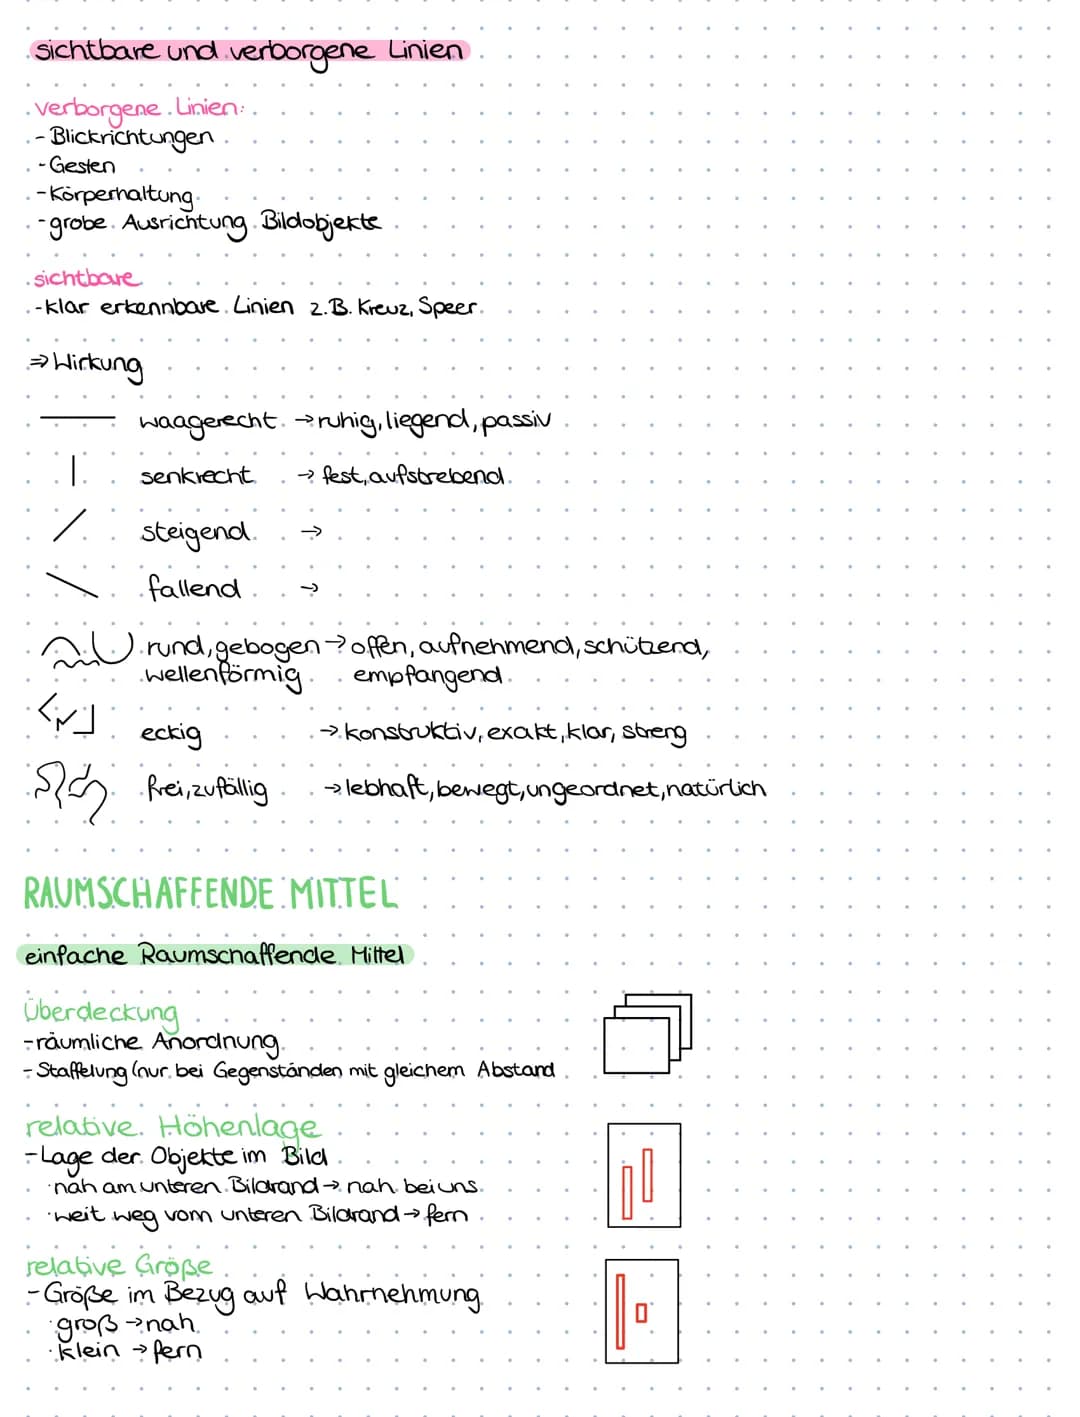 sichtbare und verborgene Linien
verborgene Linien:
- Blickrichtungen
- Gesten
- Körperhaltung
- grobe Ausrichtung Bildobjekte
sichtbare
- klar erkennbare Linien z.B. Kreuz, Speer
⇒ Wirkung
waagerecht → ruhig, liegend, passiv
senkrecht → fest, aufstrebend
steigend →
fallend →
rund, gebogen → offen, aufnehmend, schützend,
wellenförmig empfangend
eckig → konstruktiv, exakt, klar, streng
frei, zufällig → lebhaft, bewegt, ungeordnet, natürlich
RAUMSCHAFFENDE MITTEL
einfache Raumschaffende Mittel
Überdeckung
- räumliche Anordnung
- Staffelung (nur bei Gegenständen mit gleichem Abstand
relative Höhenlage
- Lage der Objekte im Bild
· nah am unteren Bildrand → nah bei uns
· weit weg vom unteren Bildrand → fern
relative Größe
- Größe im Bezug auf Wahrnehmung
· groß → nah
· klein → fern